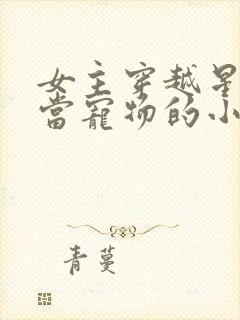 女主穿越星
當寵物的小
青蔓